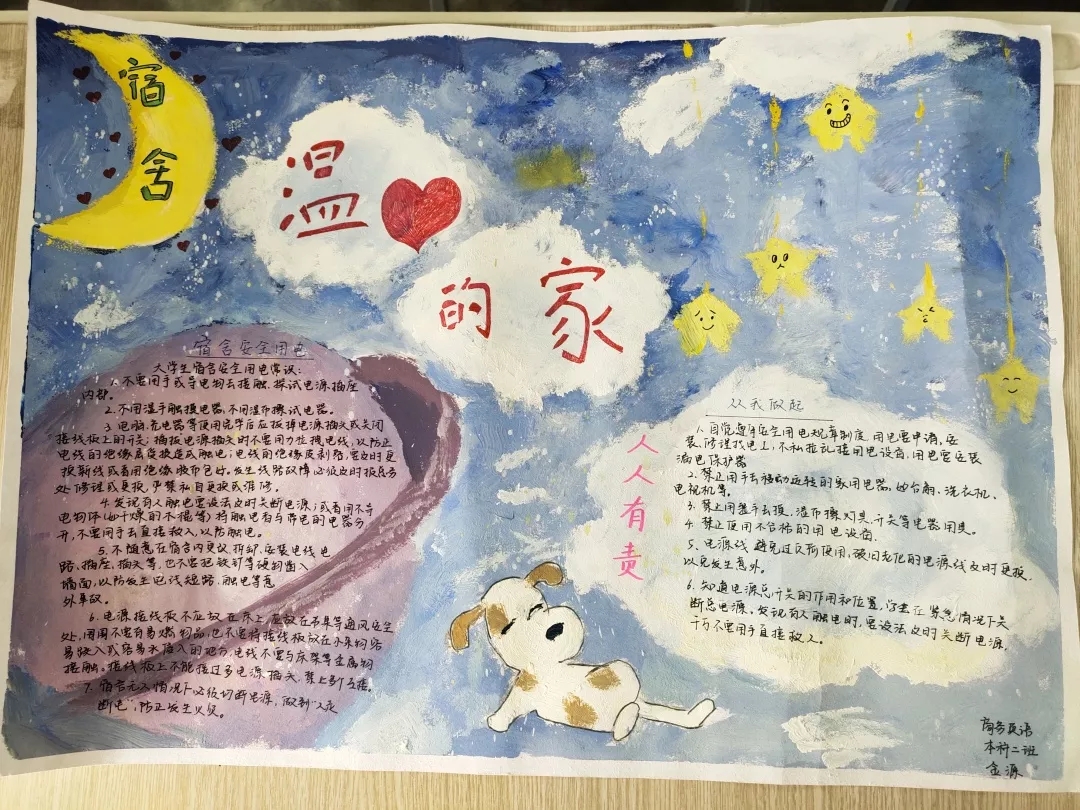 宿
舍
温
的 家
宿舍安全用电
大学生宿舍安全用电常识:
1.不要用手或导电物去接触、探试电源插座
内部。
2.不用湿手触摸电器,不用湿布擦试电器。
3.电脑、充电器等使用完毕后应拔掉电源插头或关闭
接线板上的开关;插拔电源插头时不要用力拉拽电线,以防止
电线的绝缘层受损造成触电;电线的绝缘皮剥落,要及时更
换新线或者用绝缘胶布包好。发生线路故障必须及时报后勤
处修理或更换,严禁私自更换或维修。
4.发现有人触电要设法及时关断电源;或者用不导
电物体(如干燥的木棍等)将触电者与带电的电器分
开,不要用手去直接救人,以防触电。
5.不随意在宿舍内更改、拆卸、安装电线电
路、插座、插头等,也不要把铁钉等硬物凿入
墙面,以防发生电线短路、触电等意
外事故。
6.电源接线板不应放在床上,应放在书桌等通风安全
处,周围不要有易燃物品,也不要将接线板放在水杯内容
易跌入或容易水流入的地方,电线不要与床架等金属物
接触。接线板上不能接过多电源插头,禁止多个互接。
7.宿舍无人情况下必须切断电源,做到“人走
断电”,防止发生火灾。
人
人
有
责
从我做起
1.自觉遵守安全用电规章制度,用电要申请,安
装、修理找电工,不私拉乱接用电设备,用电要安装
漏电保护器
2.禁止用手去移动运转的家用电器,如台扇、洗衣机、
电视机等。
3.禁止用湿手去摸、湿布擦灯具、开关等电器用具。
4.禁止使用不合格的用电设备.
5、电源线避免过负荷使用,破旧老化的电源线及时更换,
以免发生意外。
6、知道电源总开关的作用和位置,学会在紧急情况下关
断总电源。发现有人触电时,要设法及时关断电源,
千万不要用手直接救人。
商务英语
本科二班
金源